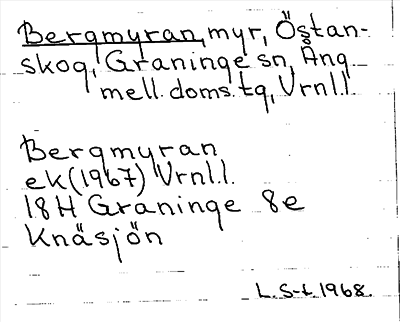 Bergmyran, myr, Östan-
skog, Graninge sn, Ång.
mell. doms. tg, Vrnl.l.
Bergmyran
ek (1967) Vrnl.l.
18H Graninge 8e
Knäsjön
L.S-t. 1968.